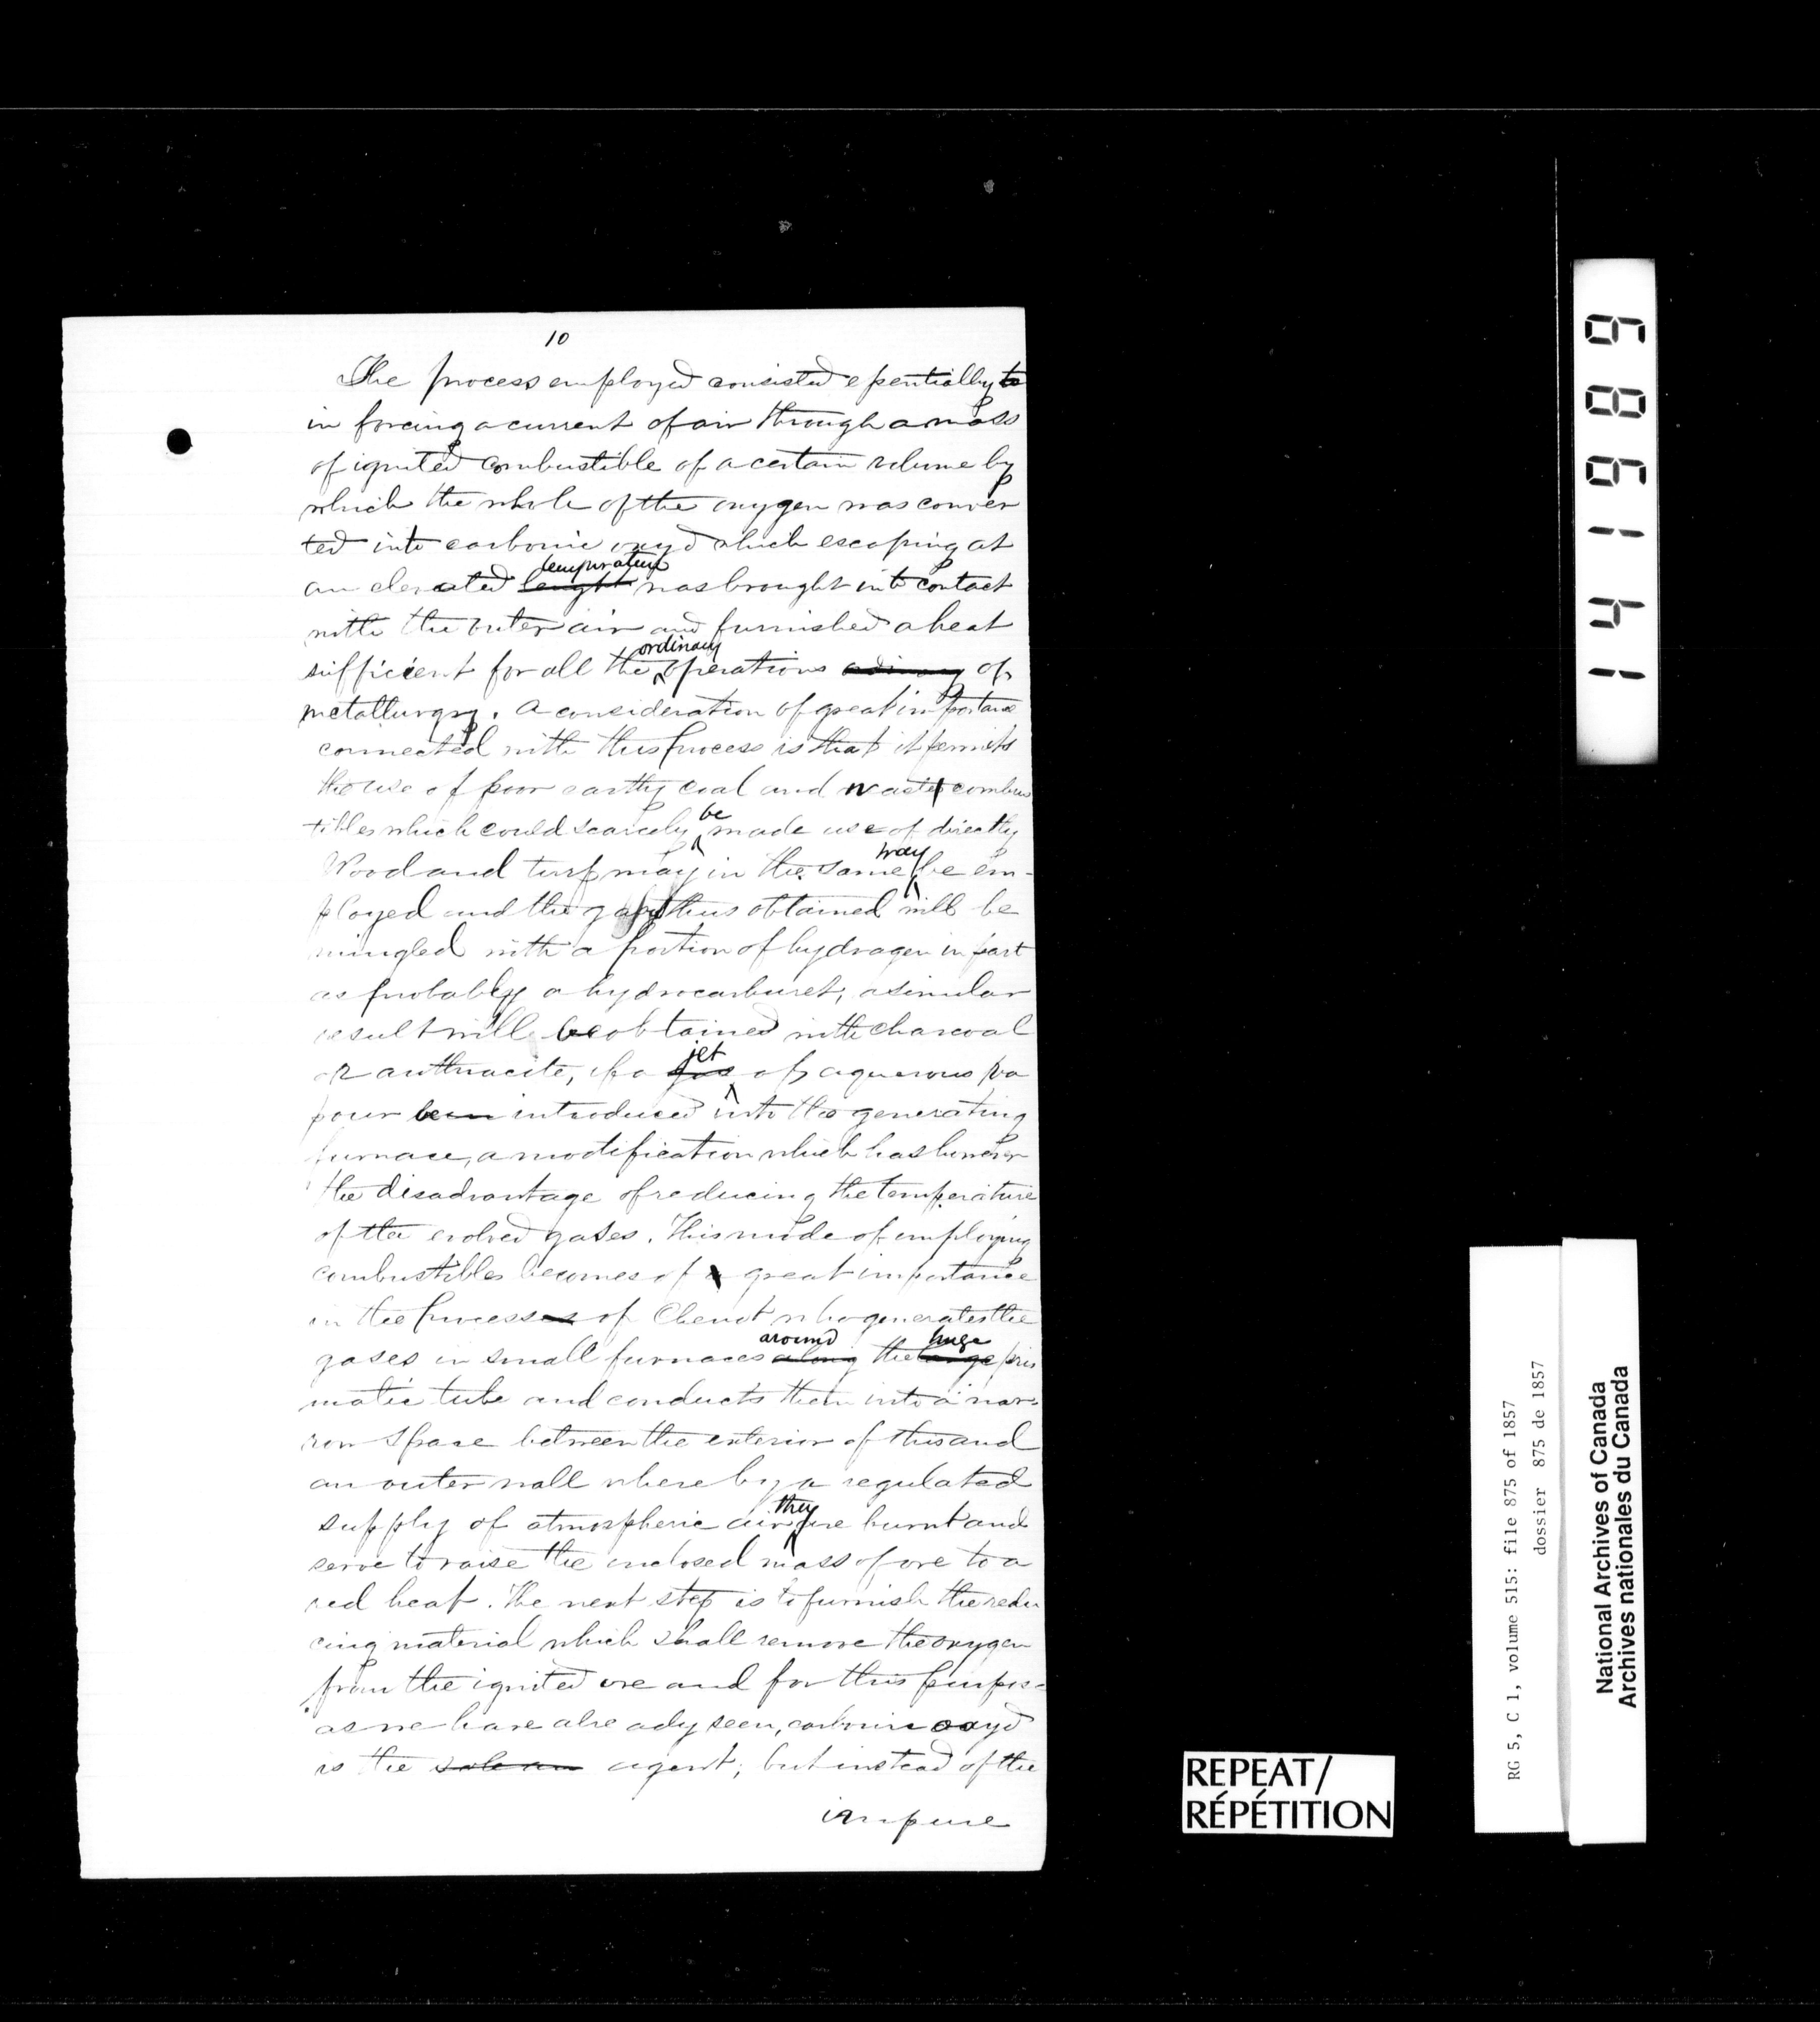 10
The process employed consisted essentially to
in forcing a current of air through a mass
of ignited combustible of a certain volume by
which the whole of the oxygen was conver
ted into carbonic oxyd which escaping at
temperature
an elevated lenght was brought into contact
with the outer air and furnished a heat
ordinary
sufficient for all the operations of
metallurgy. A consideration of great importance
connected with this process is that it permits
the use of poor earthy coal and waste combus
tibles which could scarcely be made use of directly
Wood and turf may in the same way be em-
ployed and the gas thus obtained will be
mingled with a portion of hydrogen in part
as probably a hydrocarburet, a similar
result will be obtained with charcoal
jet
or anthracite, if a gas of aquerous va
pour been introduced into the generating
furnace, a modification which has however
the disadvantage of reducing the temperature
of the evolved gases. This mode of employing
combustibles becomes of a great importance
in the processes of Chenot who generates the
around huge
gases in small furnaces along the large pris
matic tube and conducts them into a nar
row space between the exterior of this and
an outer wall where by a regulated
supply of atmospheric air they are burnt and
serve to raise the enclosed mass of ore to a
red heat. The next step is to furnish the redu
cing material which shall remove the oxygen
from the ignited ore and for this purpose
as we have already seen, carbonic oxyd
is the agent; but instead of the
impure
141619879
REPEAT/
RÉPÉTITION
RG 5, C 1, volume 515: file 875 of 1857
dossier 875 de 1857
National Archives of Canada
Archives nationales du Canada